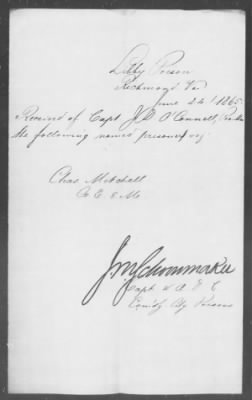 Libby Prison
Richmond Va
June 24" 1865
Received of Capt J D O'Connell,
the following named prisoner viz
Chas Mitchell
Co E 8 Me
Schoonmaker
Capt
Prisons